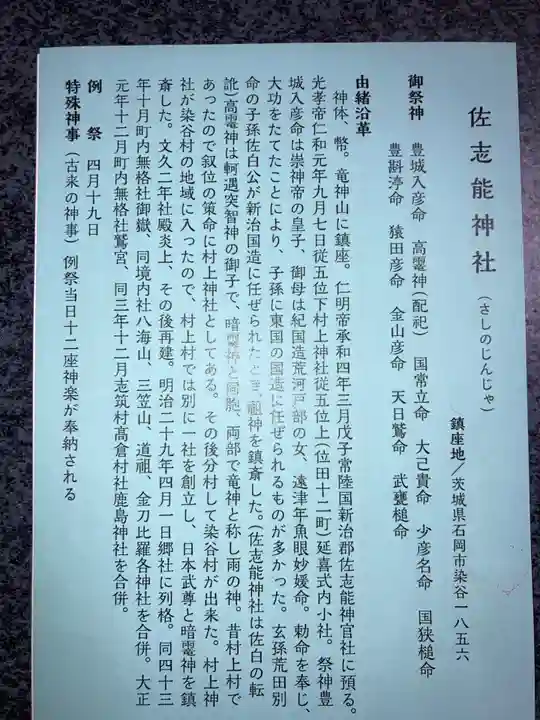 佐志能神社(さしのじんじゃ)
鎮座地/茨城県石岡市染谷一八五六
御祭神 豊城入彦命 高霊神(配祀) 国常立命 大己貴命 少彦名命 国狭槌命
豊斟渟命 猿田彦命 金山彦命 天日鷲命 武甕槌命
由緒沿革
神体、幣。竜神山に鎮座。仁明帝承和四年三月戊子常陸国新治郡佐志能神官社に預る。
光孝帝仁和元年九月七日従五位下村上神社従五位上(位田十二町)延喜式内小社。祭神豊
城入彦命は崇神帝の皇子、御母は紀国造荒河戸部の女、遠津年魚眼妙媛命。勅命を奉じ、
大功をたてたことにより、子孫に東国の国造に任ぜられるものが多かった。玄孫荒田別
命の子孫佐白公が新治国造に任ぜられたとき、祖神を鎮斎した。(佐志能神社は佐白の転
訛)高霊神は軻遇突智神の御子で、暗霊神と同胞、両部で竜神と称し雨の神。昔村上村で
あったので叙位の策命に村上神社としてある。その後分村して染谷村が出来た。村上神
社が染谷村の地域に入ったので、村上村では別に一社を創立し、日本武尊と暗霊神を鎮
斎した。文久二年社殿炎上、その後再建。明治二十九年四月一日郷社に列格。同四十三
年十月町内無格社御嶽、同境内社八海山、三笠山、道祖、金刀比羅各神社を合併。大正
元年十二月町内無格社鷲宮、同三年十二月志筑村高倉村社鹿島神社を合併。
例 祭 四月十九日
特殊神事(古来の神事) 例祭当日十二座神楽が奉納される